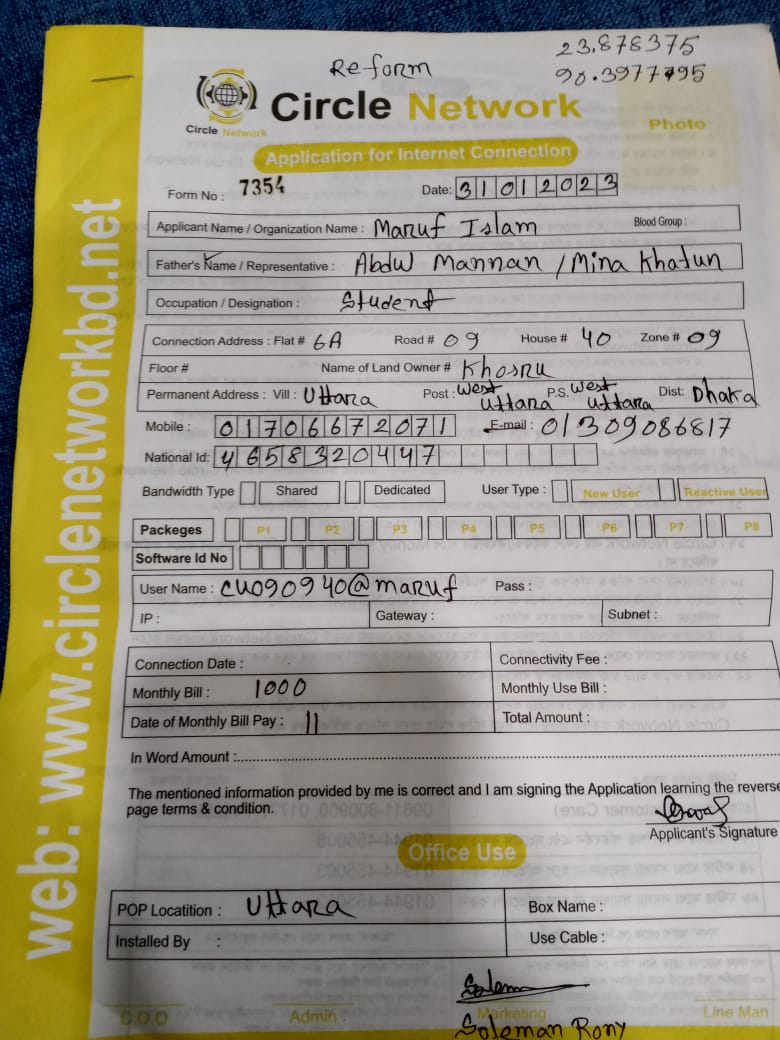 23.878375
Re form
90.3977795
Circle Network
Circle Network
Photo
Application for Internet Connection
Form No : 7354
Date: 31012023
Applicant Name / Organization Name : Maruf Islam
Blood Group :
Father's Name / Representative : Abdul Mannan / Mina Khatun
Occupation / Designation : Student
Connection Address : Flat # 6A Road # 09 House # 40 Zone # 09
Floor # Name of Land Owner # Khosru
Permanent Address : Vill : Uttara Post : West Uttara P.S. West Uttara Dist: Dhaka
Mobile : 01706672071 E-mail : 01309086817
National Id: 4658320447
Bandwidth Type Shared Dedicated User Type : New User Reactive User
Packeges P1 P2 P3 P4 P5 P6 P7 P8
Software Id No
User Name : CU090940@maruf Pass :
IP : Gateway : Subnet :
Connection Date : Connectivity Fee :
Monthly Bill : 1000 Monthly Use Bill :
Date of Monthly Bill Pay : 11 Total Amount :
In Word Amount :
The mentioned information provided by me is correct and I am signing the Application learning the reverse
page terms & condition.
Applicant's Signature
Office Use
POP Locatition : Uttara Box Name :
Installed By : Use Cable :
C.O.O Admin : Marketing Line Man
Soleman Rony
web: www.circlenetworkbd.net